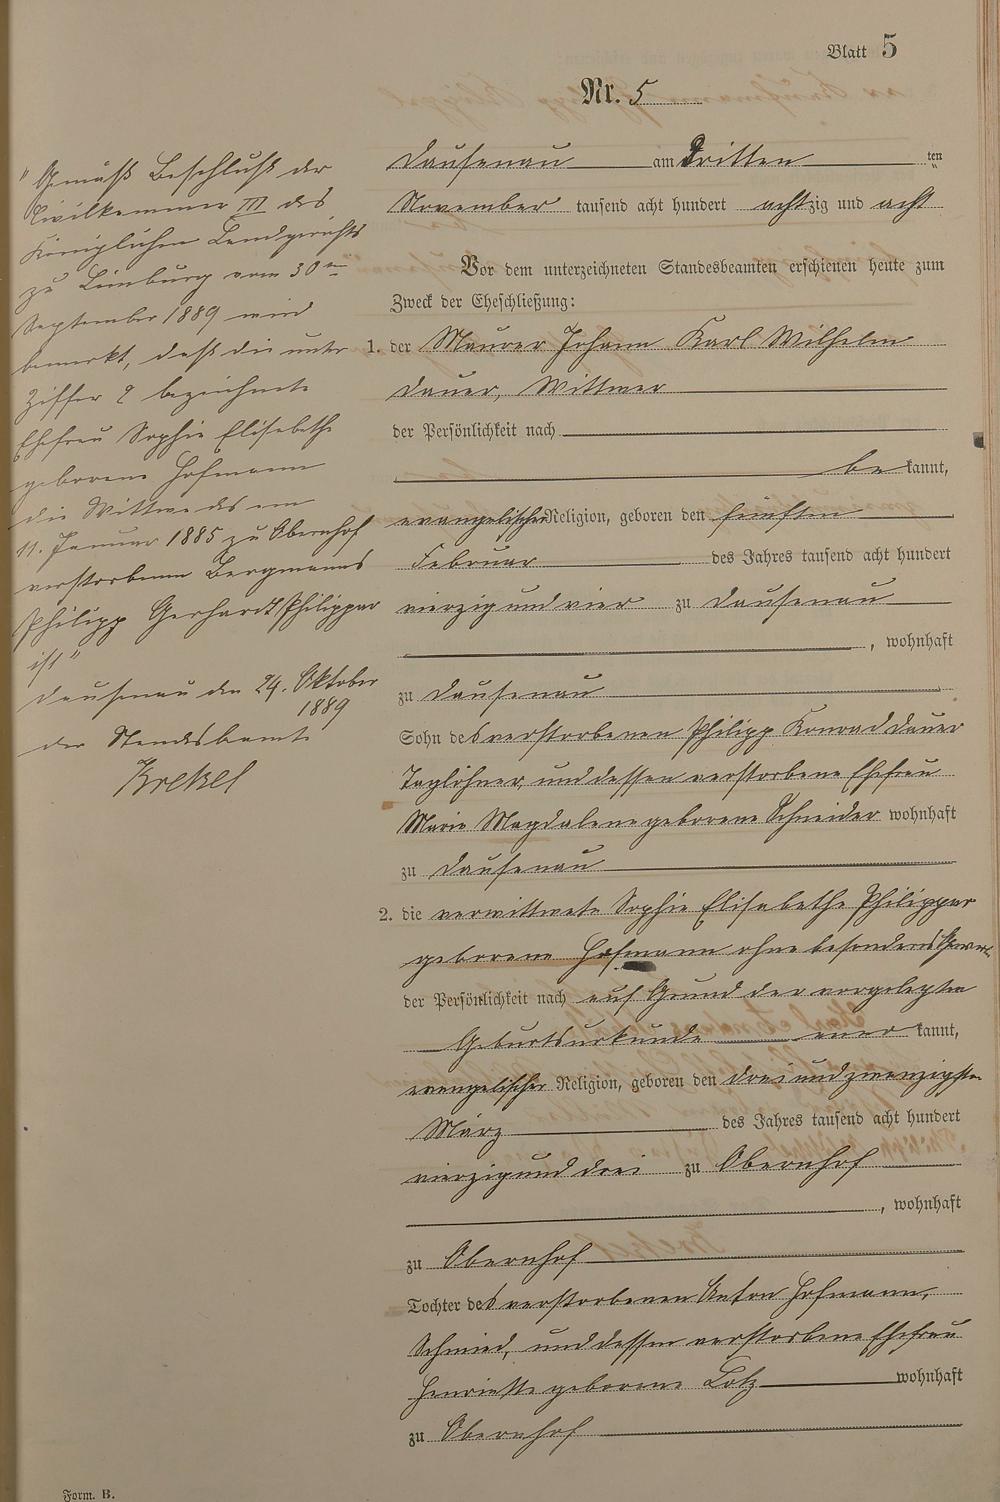 Blatt 5
Nr. 5
"Gemäß Beschluß der
Civilkammer III des
Königlichen Landgerichts
zu Limburg vom 30ten
September 1889 wird
bemerkt, daß die unter
Ziffer 2 bezeichnete
Ehefrau Sophie Elisabethe
geborene Hofmann
die Wittwe des am
11. Januar 1885 zu Obernhof
verstorbenen Bergmanns
Philipp Gerhardt Philippar
ist"
Dausenau den 24. Oktober
1889
der Standesbeamte
Krekel
Dausenau am Dritten ten
November tausend acht hundert achtzig und acht
Vor dem unterzeichneten Standesbeamten erschienen heute zum
Zweck der Eheschließung:
1. der Maurer Johann Karl Wilhelm
Dauer, Wittwer
der Persönlichkeit nach
be kannt,
evangelischer Religion, geboren den fünften
Februar des Jahres tausend acht hundert
vierzig und vier zu Dausenau
, wohnhaft
zu Dausenau
Sohn des verstorbenen Philipp Konrad Dauer
Taglöhner, und dessen verstorbene Ehefrau
Marie Magdalene geborene Schneider wohnhaft
zu Dausenau
2. die verwittwete Sophie Elisabethe Philippar
geborene Hofmann ohne besonderes Gewerbe
der Persönlichkeit nach auf Grund der vorgelegten
Geburtsurkunde aner kannt,
evangelischer Religion, geboren den drei und zwanzigsten
März des Jahres tausend acht hundert
vierzig und drei zu Obernhof
, wohnhaft
zu Obernhof
Tochter des verstorbenen Anton Hofmann,
Schmied, und dessen verstorbene Ehefrau
Henriette geborene Lotz wohnhaft
zu Obernhof
Form. B.